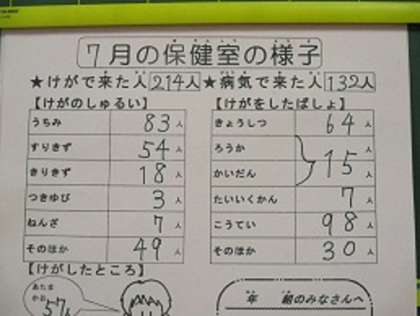 7月の保健室の様子
★けがで来た人 214人 ★病気で来た人 132人
【けがのしゅるい】 【けがをしたばしょ】
うちみ 83人 きょうしつ 64人
すりきず 54人 ろうか
きりきず 18人 かいだん 15人
つきゆび 3人 たいいくかん 7人
ねんざ 7人 こうてい 98人
そのほか 49人 そのほか 30人
【けがしたところ】
あたま
かお 57人
年 組のみなさんへ